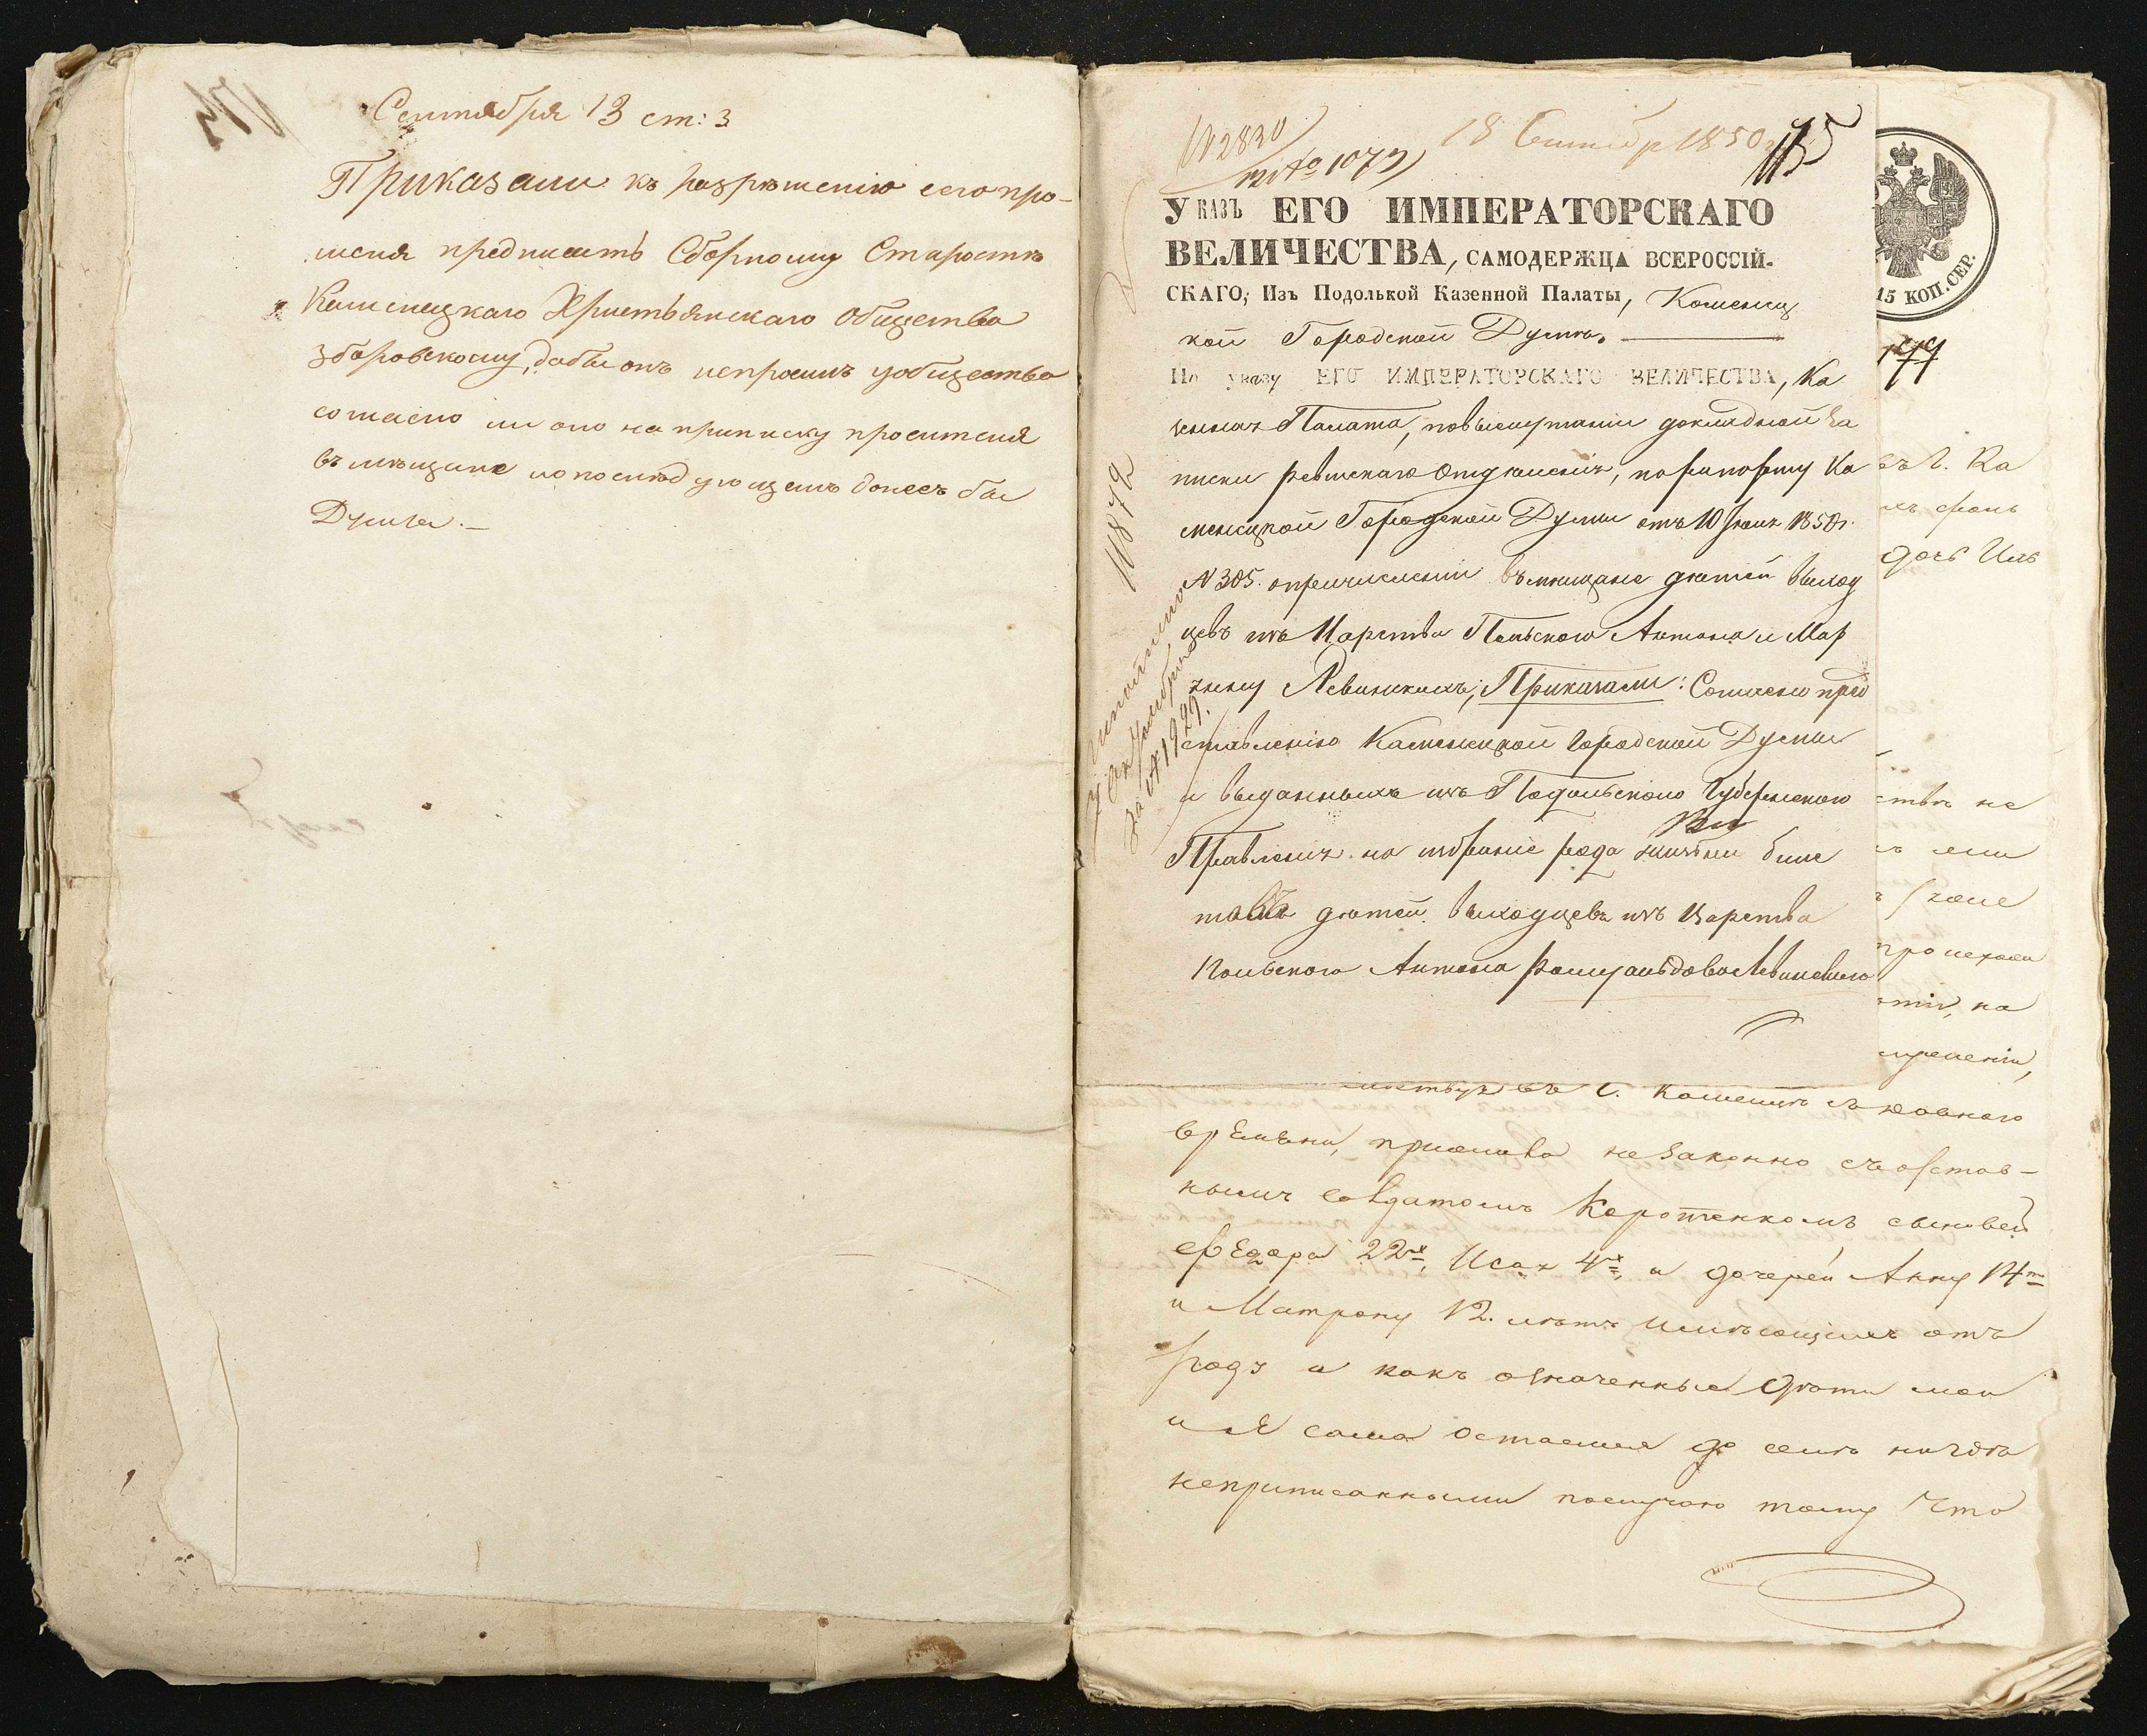 Сентября 13 ст: 3
Приказали къ разрѣшенію сего про-
шенія предписать Сборному Старостѣ
Каменецкаго Христьянскаго Общества
Зборовскому, дабы онъ испросилъ у общества
согласно ли оно на приписку просителя
въ мѣщане и о послѣдующемъ донесъ бы
Думѣ. —
N 2830
1079
18 Сентябр 1850
Указъ ЕГО ИМПЕРАТОРСКАГО
ВЕЛИЧЕСТВА, САМОДЕРЖЦА ВСЕРОССІЙ-
СКАГО, Изъ Подолькой Казенной Палаты, Каменец
кой Городской Думѣ.
По указу ЕГО ИМПЕРАТОРСКАГО ВЕЛИЧЕСТВА, Ка
зенная Палата, по выслушаніи докладной за
писки ревизскаго отдѣленія, по рапорту Ка
менецкой Городской Думы отъ 10 Іюня 1850 г.
N 305. о причисленіи въ мѣщане дѣтей выход
цевъ изъ Царства Польскаго Антона и Мар
Левинскихъ; Приказали: Согласно пред
ставленію Каменецкой Городской Думы
и выданныхъ изъ Подольскаго Губернскаго
Правленія на избраніе рода жизни биле
товъ дѣтей выходцевъ изъ Царства
Польскаго Антона Ромуальдова Левинскаго
N 1872
15 КОП. СЕР.
177
въ г. Ка
дочь
не
на
въ г. Каменцѣ съ давнаго
времѣни, прижила незаконно съ отстав-
нымъ солдатомъ Коротенкомъ сыновей
Федора 22х, Исая 4х, а дочерей Анну 14ти
и Матрону 12. лѣтъ имѣющихъ отъ
роду а какъ означенныя дѣти мои
и я сама остаемся до селѣ нигдѣ
неприписанными послучаю тому что